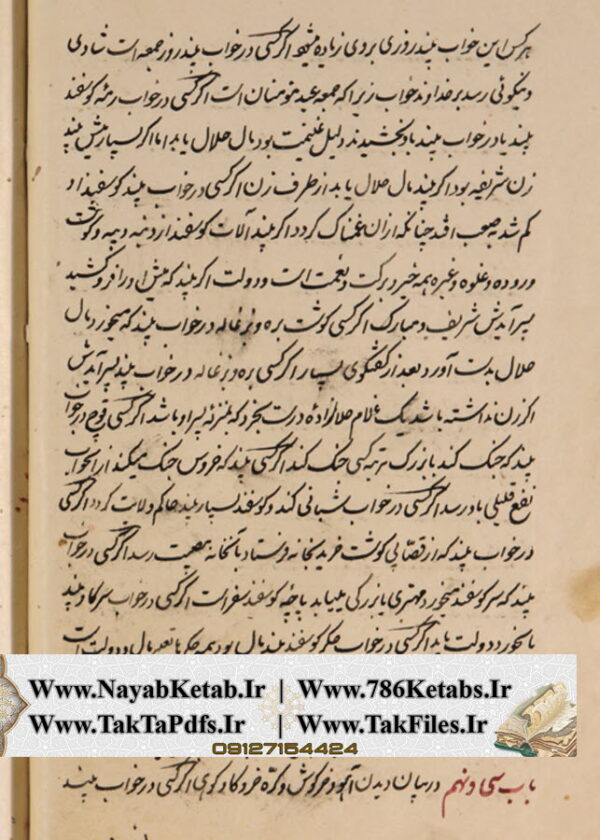 هر کس این خواب بیند روزی بروی زیاده میشود اگر کسی در خواب بیند روز جمعه است شادی
و نیکوئی رسد بر خداوند خواب زیرا که جمعه عید مؤمنان است اگر کسی در خواب رمه کوسفند
بیند یا در خواب بیند باو بخشیدند دلیل غنیمت بود مال حلال یابد اما اگر بسیار میش بیند
زن شریفه بود اگر بیند مال حلال یابد از طرف زن اگر کسی در خواب بیند کوسفند او
کم شد بصعب افتد چنانکه از ان غمناک کردد اگر بیند آلات کوسفند از دنبه و پیه و کوشت
و روده و غلوه و غیره همه خیر و برکت و نعمت است و دولت اگر بیند که میش او را فرو کشید
پسر آیدش شریف و مبارک اگر کسی کوشت بره و بزغاله در خواب بیند که میخورد مال
حلال بدست آورد بعد از گفتگوی بسیار اگر کسی بره و بزغاله در خواب بیند پسر آیدش
اگر زن نداشته باشد یک غلام حلالزاده درست بخرد که بمنزله پسر او باشد اگر کسی قوچ در خواب
بیند که جنک کند با بزرک مرتبه کسی جنک کند اگر کسی بیند که خروس جنک میکند از انخواب
نفع قلیلی باو رسد اگر کسی در خواب شبانی کند و کوسفند بسیار بیند حاکم ولایت کردد اگر کسی
در خواب بیند که از قصابی کوشت خرید بخانه فرستاد بآنخانه مصیبت رسد اگر کسی در خواب
بیند که سر کوسفند میخورد مهتری یا بزرکی بیابد پاچه کوسفند سفر است اگر کسی در خواب سر کاو بیند
یا بخورد دولت یابد اگر کسی در خواب جکر کوسفند بیند مال بود همه جکرها تعبیر مال و دولت است
Www.NayabKetab.Ir | Www.786Ketabs.Ir
Www.TakTaPdfs.Ir | Www.TakFiles.Ir
09127154424
باب سی و نهم در بیان دیدن آهو و خرکوش و کره خر و کاو کوهی اگر کسی در خواب بیند